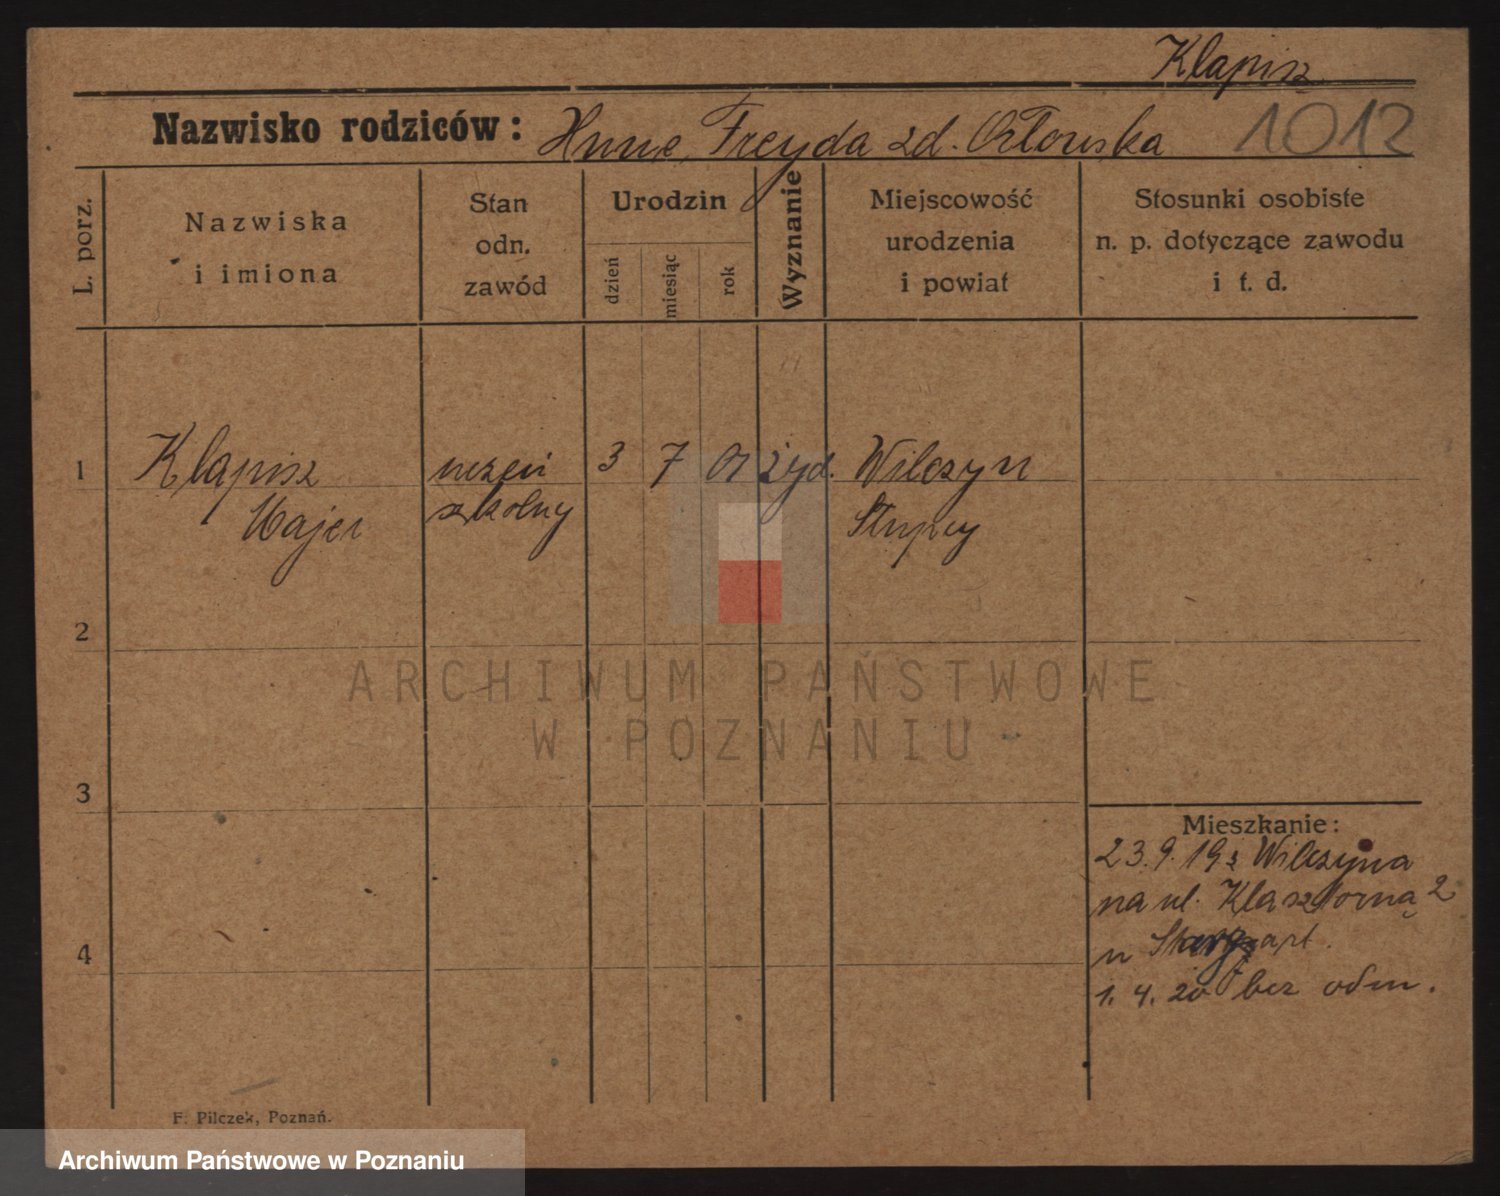 Klapisz
Nazwisko rodziców: Freyda zd. Orłowska 1012
L. porz.
Nazwiska
i imiona
Stan
odn.
zawód
Urodzin
dzień
miesiąc
rok
Wyznanie
Miejscowość
urodzenia
i powiat
Stosunki osobiste
n. p. dotyczące zawodu
i t. d.
1 Klapisz uczeń 3 7 01 żyd. Wilczyn
Majer szkolny Słupcy
2
ARCHIWUM PAŃSTWOWE
W POZNANIU
3
Mieszkanie:
23.9.19 z Wilczyna
na ul. Klasztorną 2
u
4
1.4.20 bez odm.
F. Pilczek, Poznań.
Archiwum Państwowe w Poznaniu